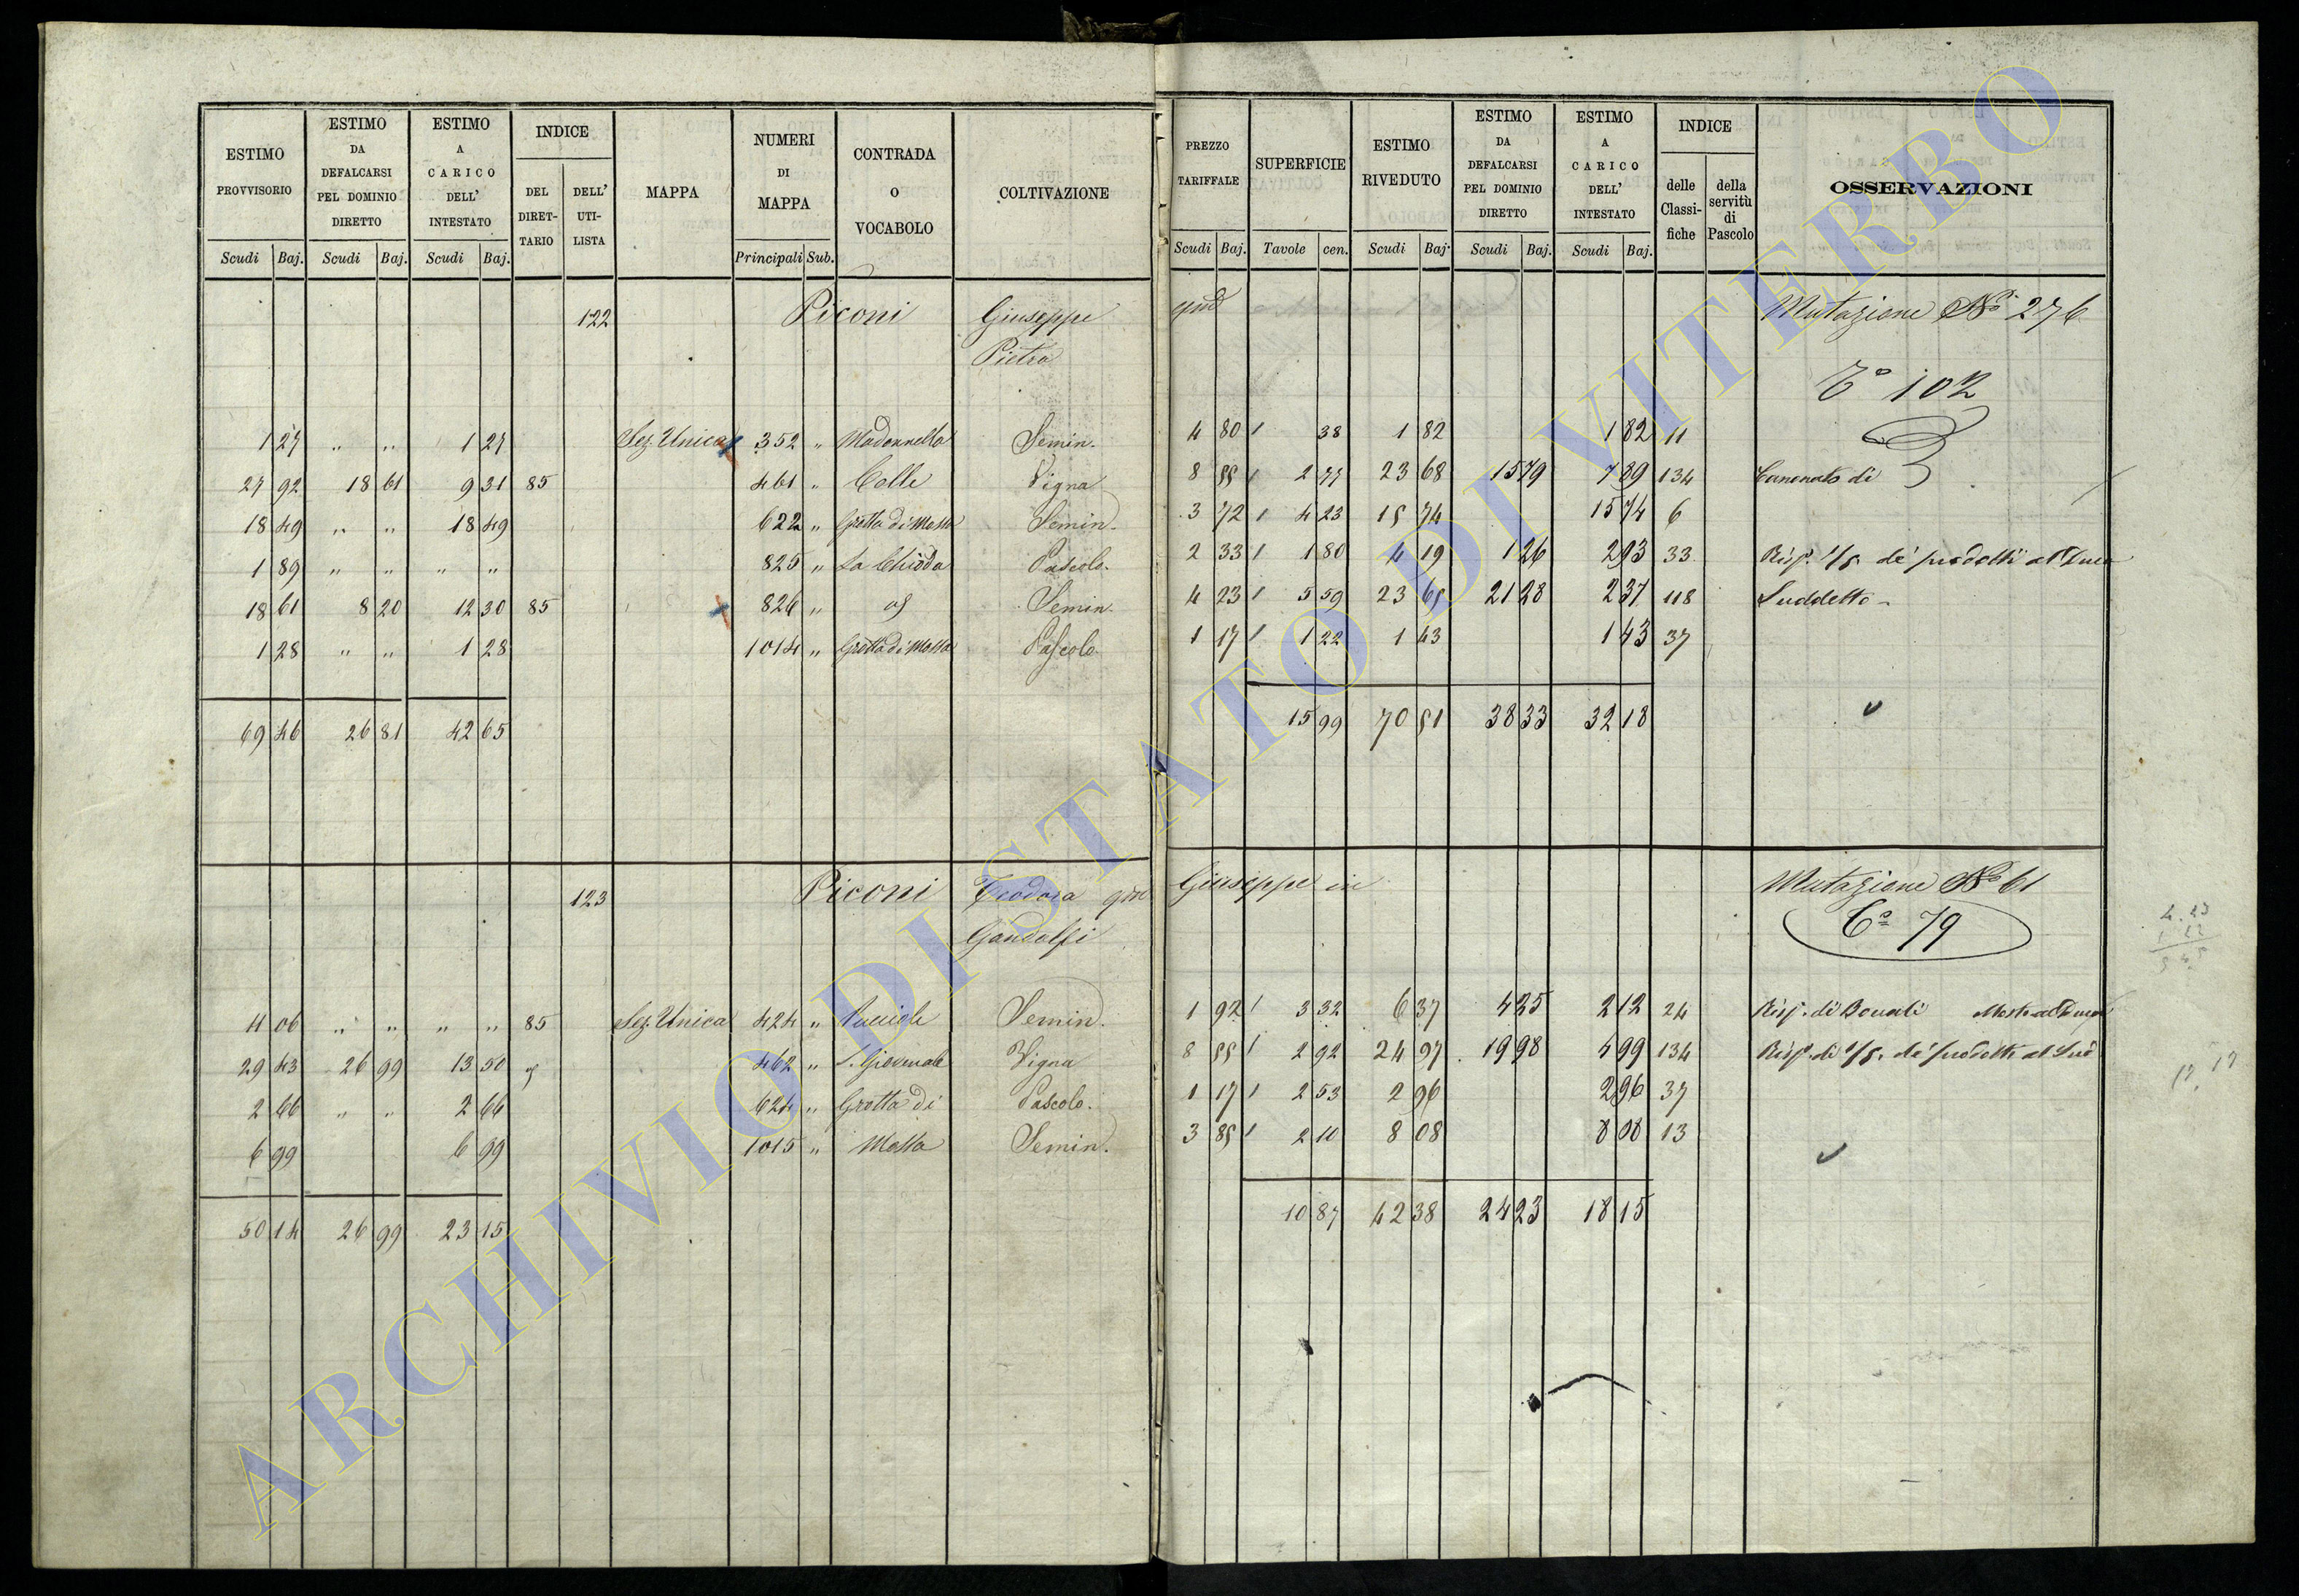 ESTIMO PROVVISORIO | ESTIMO DA DEFALCARSI PEL DOMINIO DIRETTO | ESTIMO A CARICO DELL' INTESTATO | INDICE DEL DIRET-TARIO | DELL' UTI-LISTA | MAPPA | NUMERI DI MAPPA | CONTRADA O VOCABOLO | COLTIVAZIONE | PREZZO TARIFFALE | SUPERFICIE | ESTIMO RIVEDUTO | ESTIMO DA DEFALCARSI PEL DOMINIO DIRETTO | ESTIMO A CARICO DELL' INTESTATO | INDICE delle Classi-fiche | della servitù di Pascolo | OSSERVAZIONI
Scudi Baj. | Scudi Baj. | Scudi Baj. | Principali Sub. | Scudi Baj. | Tavole cen. | Scudi Baj. | Scudi Baj. | Scudi Baj.
122 Piconi Giuseppe qm Mutazione No 276
Pietro
To 102
1 27 " " 1 27 Sez. Unica 352 " Madonnella Semin. 4 80 38 1 82 1 82 11
27 92 18 61 9 31 85 461 " Colle Vigna 8 55 2 77 23 68 15 79 7 89 134 Canonato di
18 49 " " 18 49 622 " Grotta di Massa Semin. 3 72 4 23 15 74 15 74 6
1 89 " " " " 825 " La Chioda Pascolo. 2 33 1 80 4 19 1 26 2 93 33 Risp. 1/5. de' prodotti al Duca
18 61 8 20 12 30 85 826 " Semin. 4 23 5 59 23 65 21 28 2 37 118 Suddetto
1 28 " " 1 28 1014 " Grotta di Massa Pascolo 1 17 1 22 1 43 1 43 37
69 46 26 81 42 65 15 99 70 51 38 33 32 18
123 Piconi Teodora qm Giuseppe in Mutazione No 61
Gandolfi
Co 79
4 23
1 22
5 45
11 06 " " " " 85 Sez. Unica 424 " Semin. 1 92 3 32 6 37 4 25 2 12 24 Risp. di al Duca
29 43 26 99 13 50 462 " S. Giovenale Vigna 8 55 2 92 24 97 19 98 4 99 134 Risp. di 1/5. de' prodotti al Sud
2 66 " " 2 66 624 " Grotta di Pascolo. 1 17 2 53 2 96 2 96 37
6 99 6 99 1015 " Massa Semin. 3 85 2 10 8 08 8 08 13
50 14 26 99 23 15 10 87 42 38 24 23 18 15
ARCHIVIO DI STATO DI VITERBO